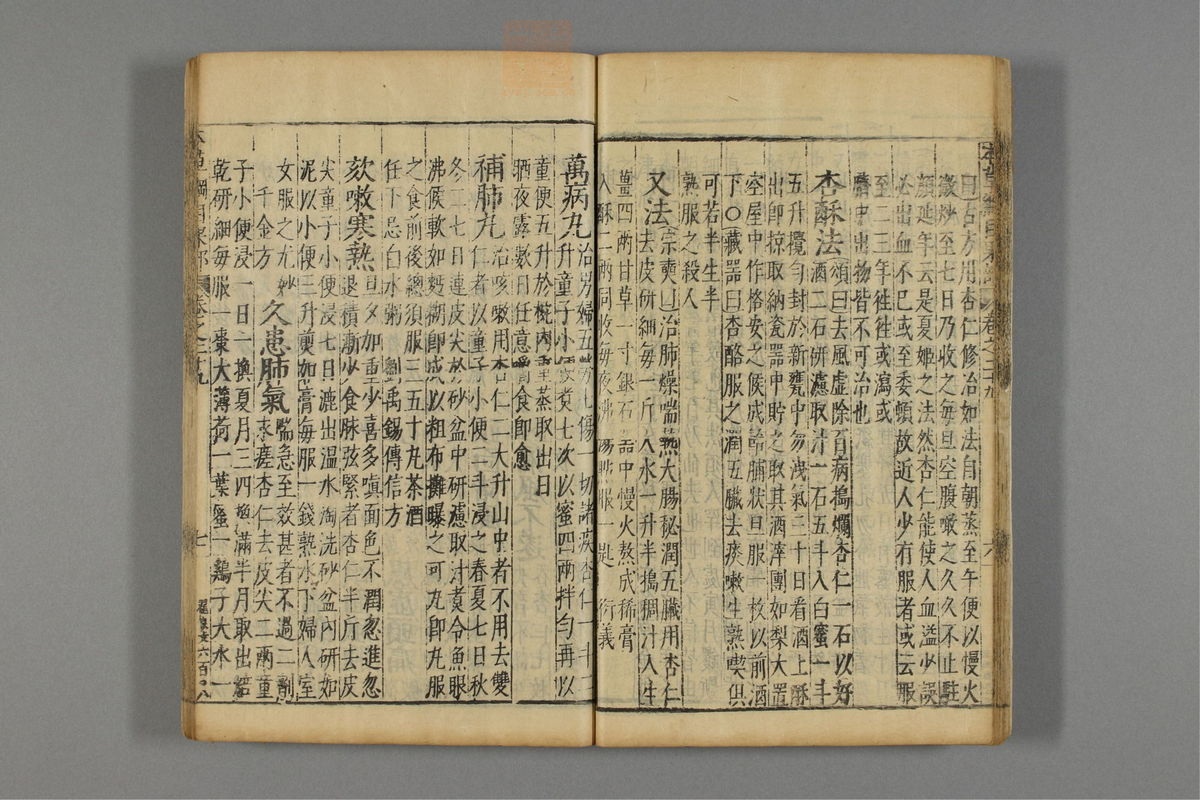 本草綱目果部 卷之二十九 六
曰古方用杏仁修治如法自朝蒸至午便以慢火
微炒至七日乃收之每旦空腹噉之久久不止駐
顏延年云是夏姬之法然杏仁能使人血溢少誤
必出血不已或至委頓故近人少有服者或云服
至二三年徃徃或瀉或
臍中出物皆不可治也
杏酥法頌曰去風虛除百病搗爛杏仁一石以好
酒二石研濾取清一石五斗入白蜜一斗
五升攪勻封於新甕中勿洩氣三十日看酒上酥
出即掠取納瓷器中貯之取其酒滓團如梨大置
空屋中作格安之候成飴脯狀旦服一枚以前酒
下○藏器曰杏酪服之潤五臟去痰嗽生熟喫俱
可若半生半
熟服之殺人
又法宗奭曰治肺燥喘熱大腸秘潤五臟用杏仁
去皮研細每一斤入水一升半搗稠汁入生
薑四兩甘草一寸銀石器中慢火熬成稀膏
入酥二兩同收每夜沸湯點服一匙 衍義
萬病丸治男婦五勞七傷一切諸疾杏仁一斗二
升童子小便煮七次以蜜四兩拌勻再以
童便五升於椀內重蒸取出日
晒夜露數日任意嚼食即愈
補肺丸治咳嗽用杏仁二大升山中者不用去雙
仁者以童子小便二斗浸之春夏七日秋
冬二七日連皮尖於砂盆中研濾取汁煮令魚眼
沸候軟如麪糊即成以粗布攤曝之可丸即丸服
之食前後總須服三五十丸茶酒
任下忌白水粥 劉禹錫傳信方
欬嗽寒熱旦夕加重少喜多嗔面色不潤忽進忽
退積漸少食脉弦緊者杏仁半斤去皮
尖童子小便浸七日漉出溫水淘洗砂盆內研如
泥以小便三升煎如膏每服一錢熟水下婦人室
女服之尤妙
千金方
久患肺氣喘急至效甚者不過二劑
永瘥杏仁去皮尖二兩童
子小便浸一日一換夏月三四換滿半月取出焙
乾研細每服一棗大薄荷一葉蜜一鷄子大水一
本草綱目果部 卷之二十九 七